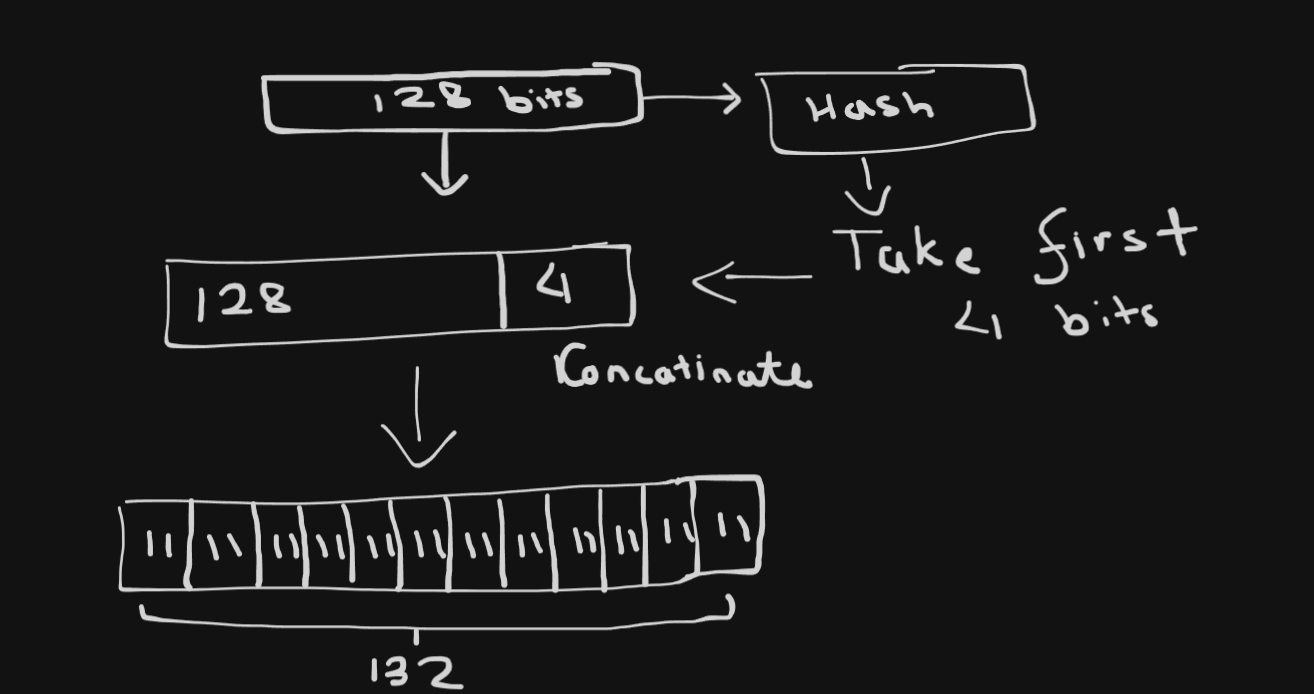 128 bits
Hash
Take first
4 bits
128
4
Concatinate
11
11
11
11
11
11
11
11
11
11
11
11
132